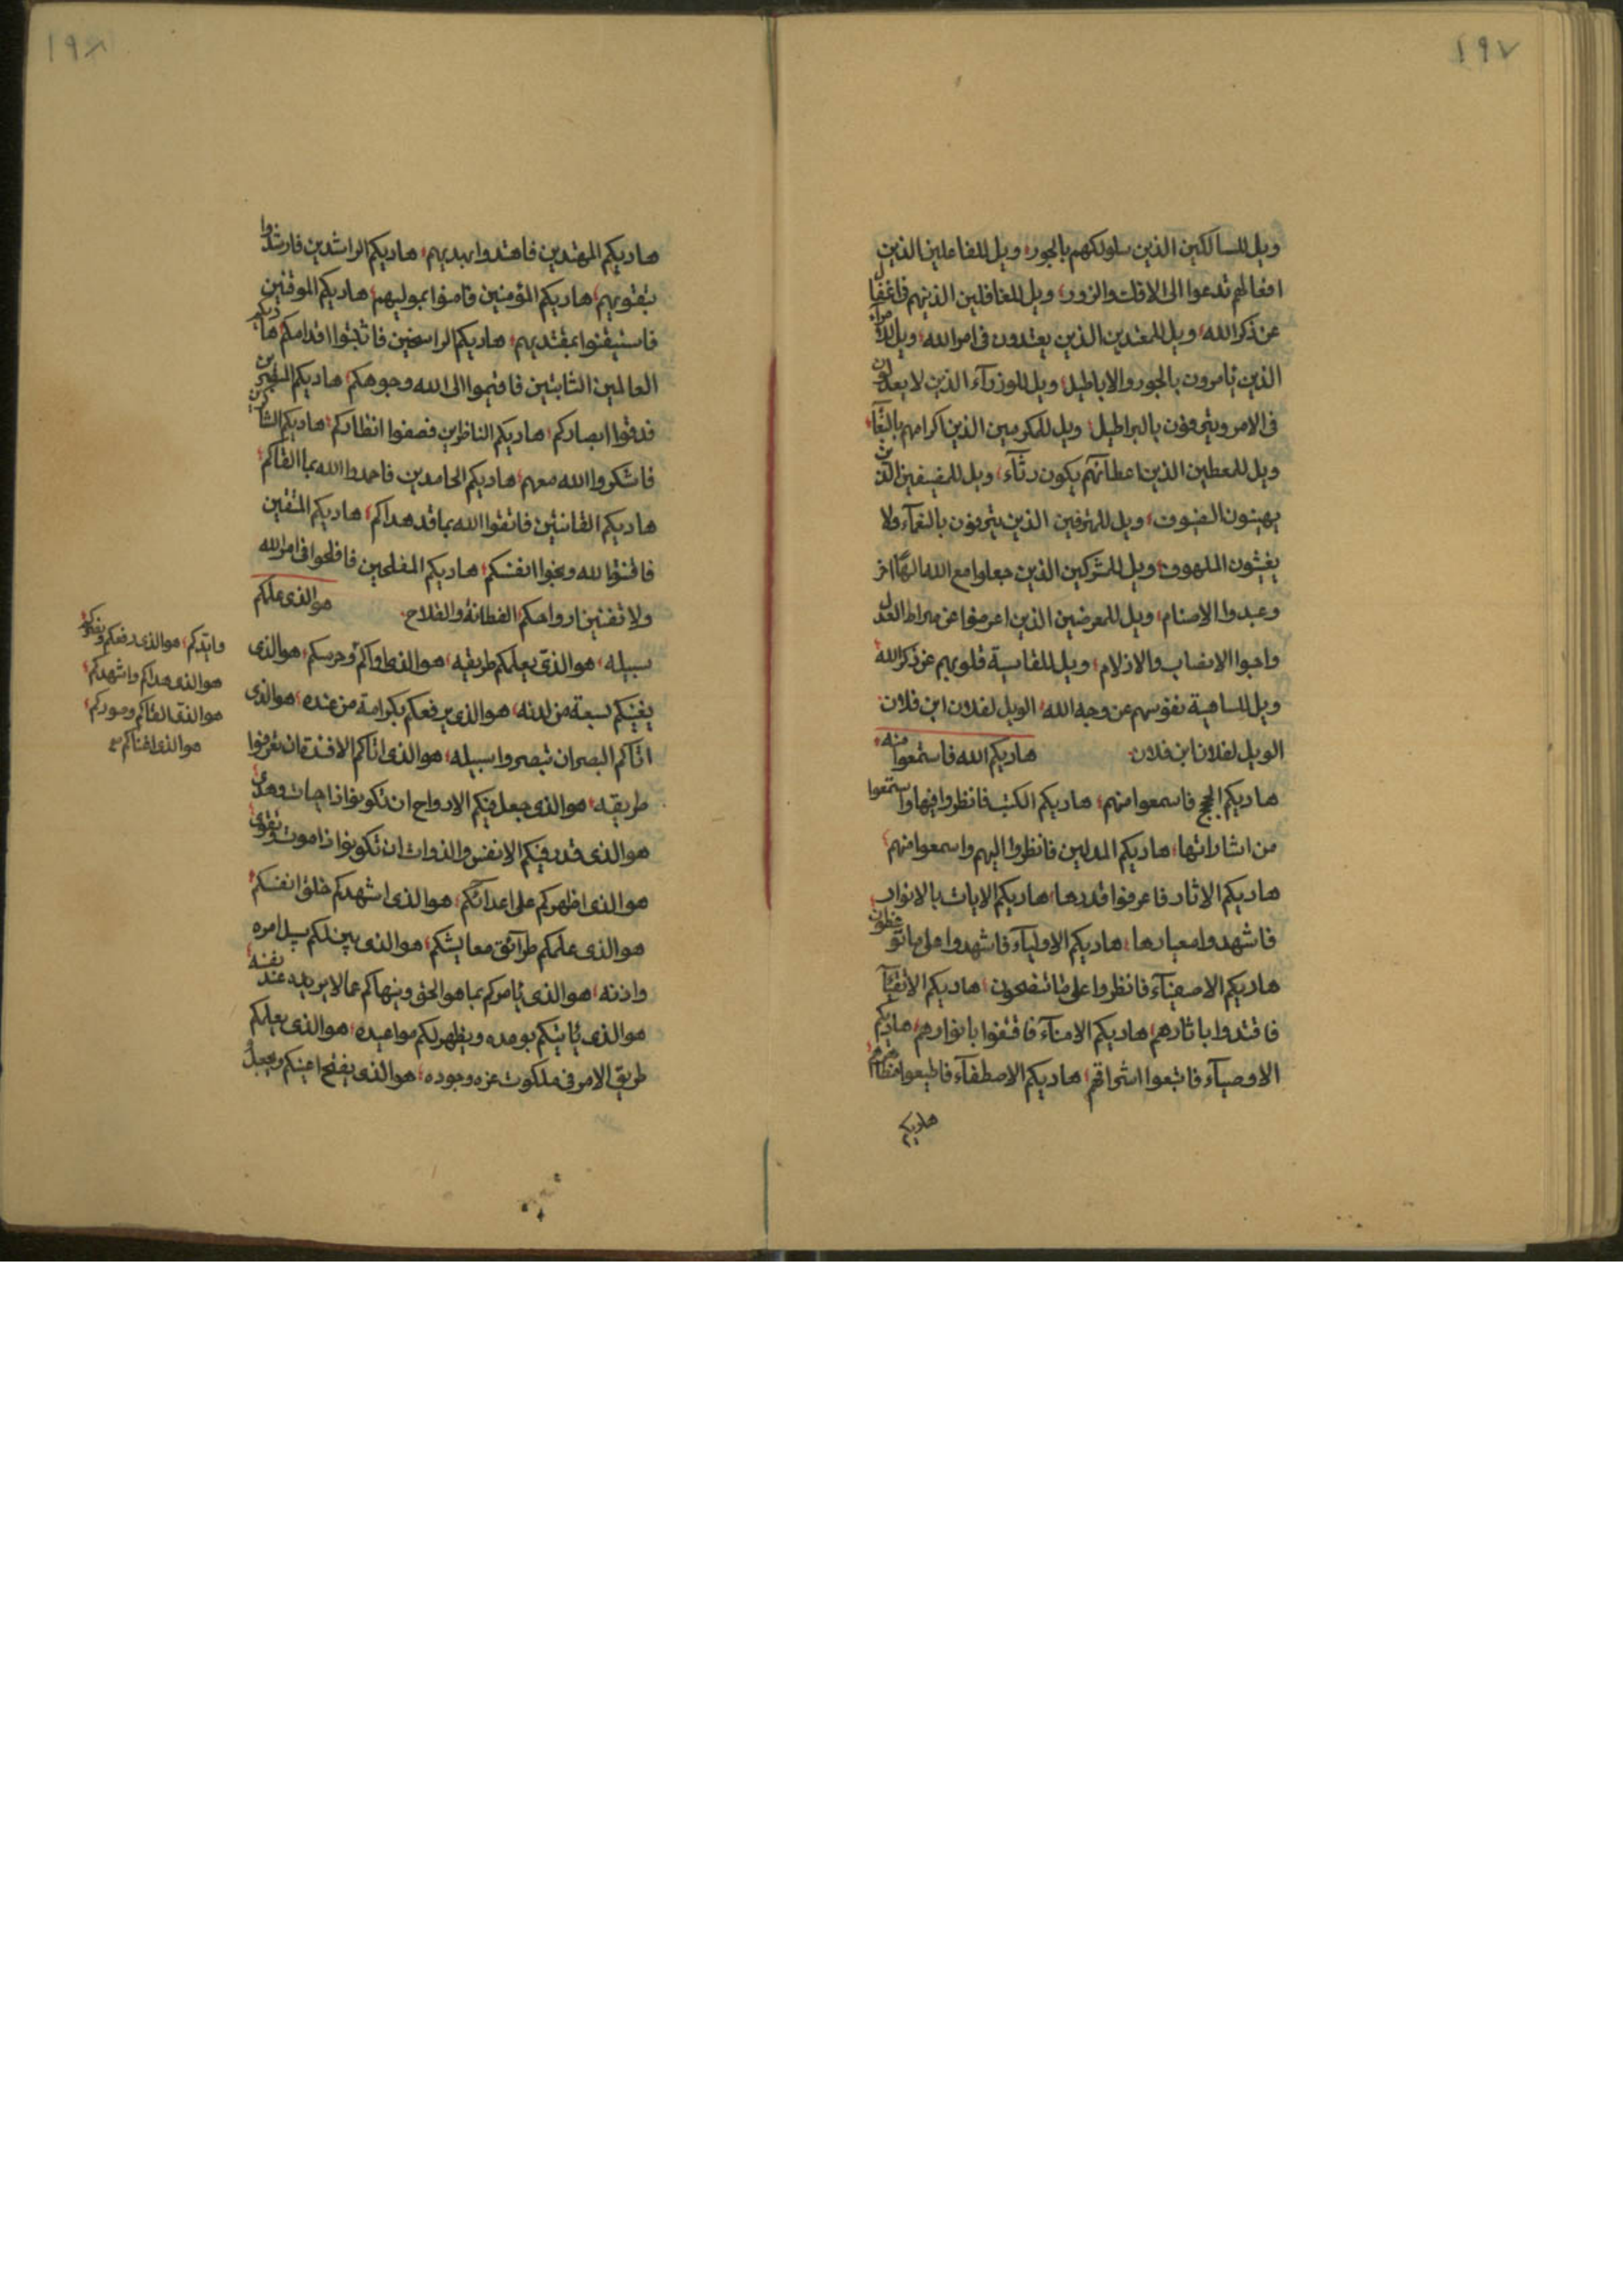 ١٩٧
ويل للسالكين الذين سلوكهم بالجور، ويل للفاعلين الذين
افعالهم تدعوا الى الافك والزور، ويل للغافلين الذينهم
عن ذكر الله، ويل للمعتدين الذين يعتدون فى امر الله، ويل
الذين يامرون بالجور والاباطيل، ويل للوزرآء الذين لا يعدلون
فى الامر ويترفون بالبراطيل، ويل للمكرمين الذين اكرامهم
ويل للمعطين الذين اعطائهم يكون رئآء، ويل للمضيفين الذين
يهينون الضيوف، ويل للمترفين الذين يترفون بالنعمآء ولا
يغيثون الملهوف، ويل للمشركين الذين جعلوا مع الله الهًا اخر
وعبدوا الاصنام، ويل للمعرضين الذين اعرضوا عن صراط العدل
واحبوا الانصاب والازلام، ويل للقاسية قلوبهم عن ذكر الله
ويل للساهية نفوسهم عن وجه الله، الويل لفلان ابن فلان
الويل لفلان ابن فلان، هاديكم الله فاستمعوا منه
هاديكم الحجج فاسمعوا منهم، هاديكم الكتب فانظروا فيها واستمعوا
من اشاراتها، هاديكم المدلين فانظروا اليهم واسمعوا منهم
هاديكم الاثار فاعرفوا قدرها، هاديكم الايات بالانوار
فاشهدوا معيارها، هاديكم الاوليآء فاشهدوا على ما
هاديكم الاصفيآء فانظروا على ما تنصحون، هاديكم الاتقيآء
فاقتدوا باثارهم، هاديكم الامنآء فاقتفوا بانوارهم، هاديكم
الاوصيآء فاتبعوا اشراقهم، هاديكم الاصطفآء فاطيعوا
هاديكم
١٩٨
هاديكم المهتدين فاهتدوا بهديهم، هاديكم الراشدين فارشدوا
بتقويهم، هاديكم المؤمنين فامنوا بموليهم، هاديكم الموقنين
فاستيقنوا بمقتديهم، هاديكم الراسخين فاثبتوا اقدامكم، هاديكم
العالمين الثابتين فاقيموا الى الله وجوهكم، هاديكم
فدققوا ابصاركم، هاديكم الناظرين فصفوا انظاركم، هاديكم الشاكرين
فاشكروا الله معهم، هاديكم الحامدين فاحمدوا الله بما القاكم
هاديكم القانتين فاتقوا الله بما قد هداكم، هاديكم المتقين
فاقنتوا لله ونجوا انفسكم، هاديكم المفلحين فافلحوا فى امر الله
ولا تفتنين ارواحكم الفطانة والفلاح. هو الذى علمكم
سبيله، هو الذى يعلمكم طريقه، هو الذى اواكم وحرسكم، هو الذى
يغنيكم بسعة من لدنه، هو الذى يرفعكم بكرامة من عنده، هو الذى
اتاكم البصر ان تبصروا سبيله، هو الذى اتاكم الافئدة ان تعرفوا
طريقه، هو الذى جعل فيكم الارواح ان تكونوا ذا حيات وهدى
هو الذى قدر فيكم الانفس والذوات ان تكونوا ذا موت وتقوى
هو الذى اظهركم على اعدائكم، هو الذى اشهدكم خلق انفسكم
هو الذى علمكم طرآئق معايشكم، هو الذى بين لكم سبل امره
واذنه، هو الذى يامركم بما هو الحق وينهاكم عما لا يريده عند نفسه
هو الذى ياتيكم بوعده ويظهر لكم مواعيده، هو الذى يعلمكم
طريق الامر فى ملكوت عزه وجوده، هو الذى يفتح اعينكم ويجعل
وايدكم، هو الذى رفعكم
هو الذى هداكم واشهدكم
هو الذى القاكم وصوركم
هو الذى اغناكم